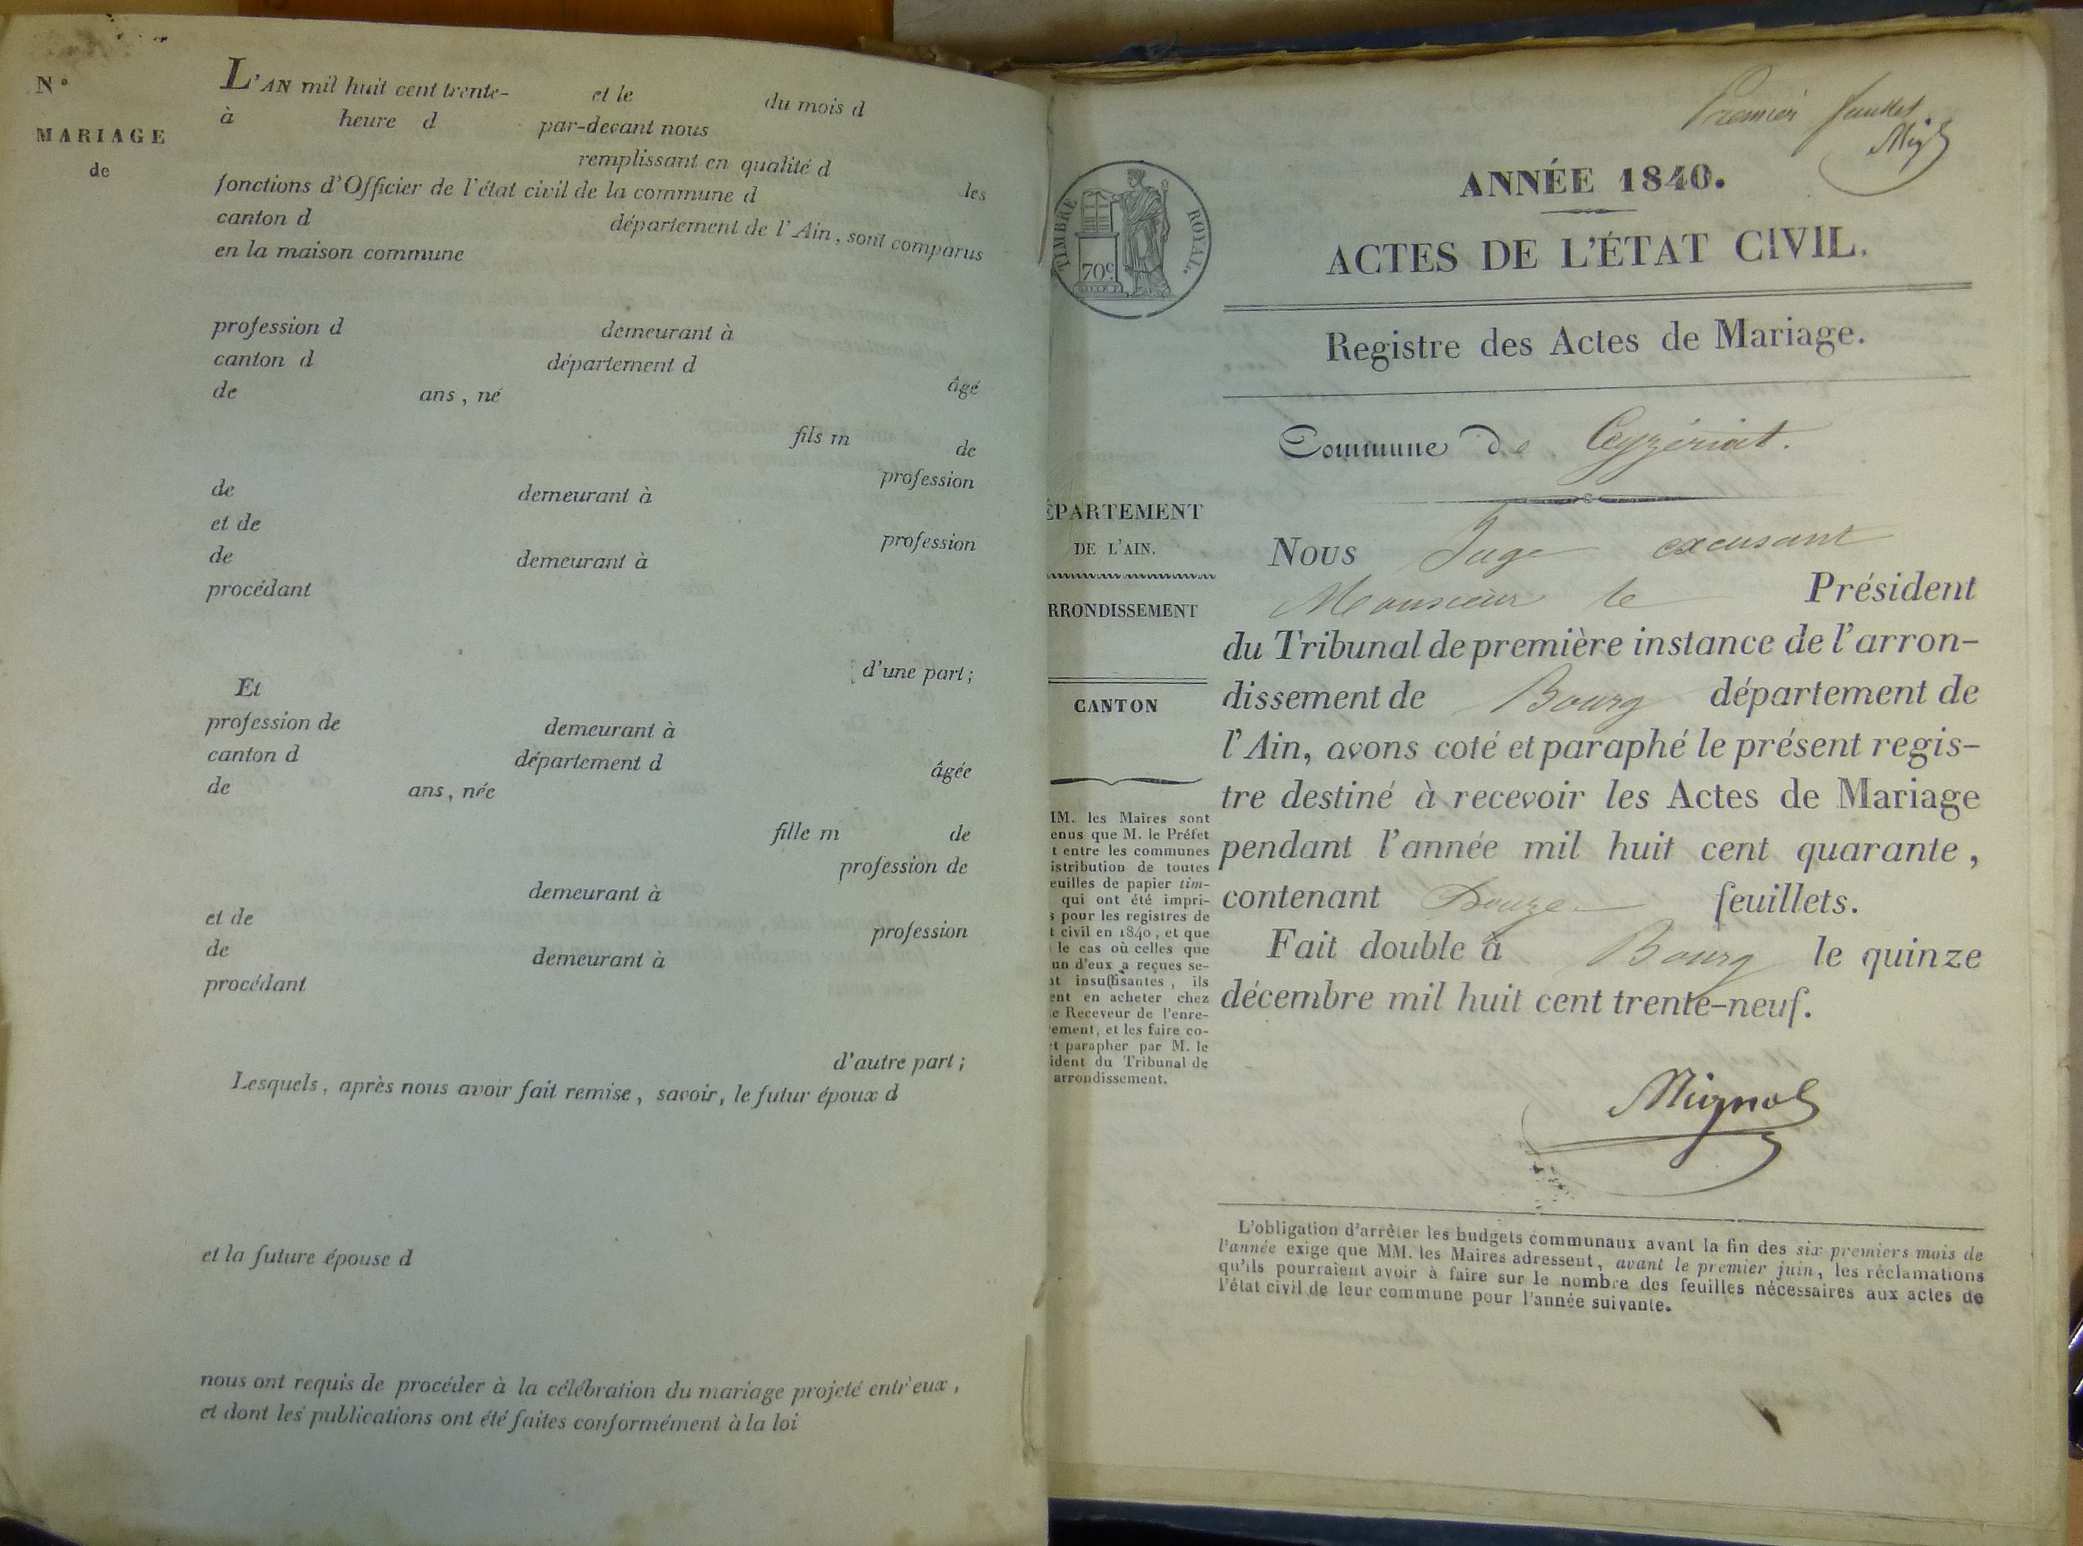 N°
MARIAGE
de
L'AN mil huit cent trente- et le du mois d
à heure d par-devant nous
remplissant en qualité d les
fonctions d'Officier de l'état civil de la commune d
canton d département de l'Ain, sont comparus
en la maison commune
profession d demeurant à
canton d département d âgé
de ans, né
fils m de
profession
de demeurant à
et de profession
de demeurant à
procédant
d'une part;
Et
profession de demeurant à
canton d département d âgée
de ans, née
fille m de
profession de
demeurant à
et de profession
de demeurant à
procédant
d'autre part;
Lesquels, après nous avoir fait remise, savoir, le futur époux d
et la future épouse d
nous ont requis de procéder à la célébration du mariage projeté entr'eux,
et dont les publications ont été faites conformément à la loi
Premier feuillet
Mig
TIMBRE ROYAL.
70c
ANNÉE 1840.
ACTES DE L'ÉTAT CIVIL.
Registre des Actes de Mariage.
Commune de Ceyzériat.
ÉPARTEMENT
DE L'AIN.
RRONDISSEMENT
CANTON
IM. les Maires sont
enus que M. le Préfet
t entre les communes
istribution de toutes
euilles de papier tim-
qui ont été impri-
s pour les registres de
t civil en 1840, et que
le cas où celles que
un d'eux a reçues se-
nt insuffisantes, ils
ent en acheter chez
e Receveur de l'enre-
ement, et les faire co-
et parapher par M. le
ident du Tribunal de
arrondissement.
Nous Juge excusant
Monsieur le Président
du Tribunal de première instance de l'arron-
dissement de Bourg département de
l'Ain, avons coté et paraphé le présent regis-
tre destiné à recevoir les Actes de Mariage
pendant l'année mil huit cent quarante,
contenant Douze feuillets.
Fait double à Bourg le quinze
décembre mil huit cent trente-neuf.
Mignot
L'obligation d'arrêter les budgets communaux avant la fin des six premiers mois de
l'année exige que MM. les Maires adressent, avant le premier juin, les réclamations
qu'ils pourraient avoir à faire sur le nombre des feuilles nécessaires aux actes de
l'état civil de leur commune pour l'année suivante.